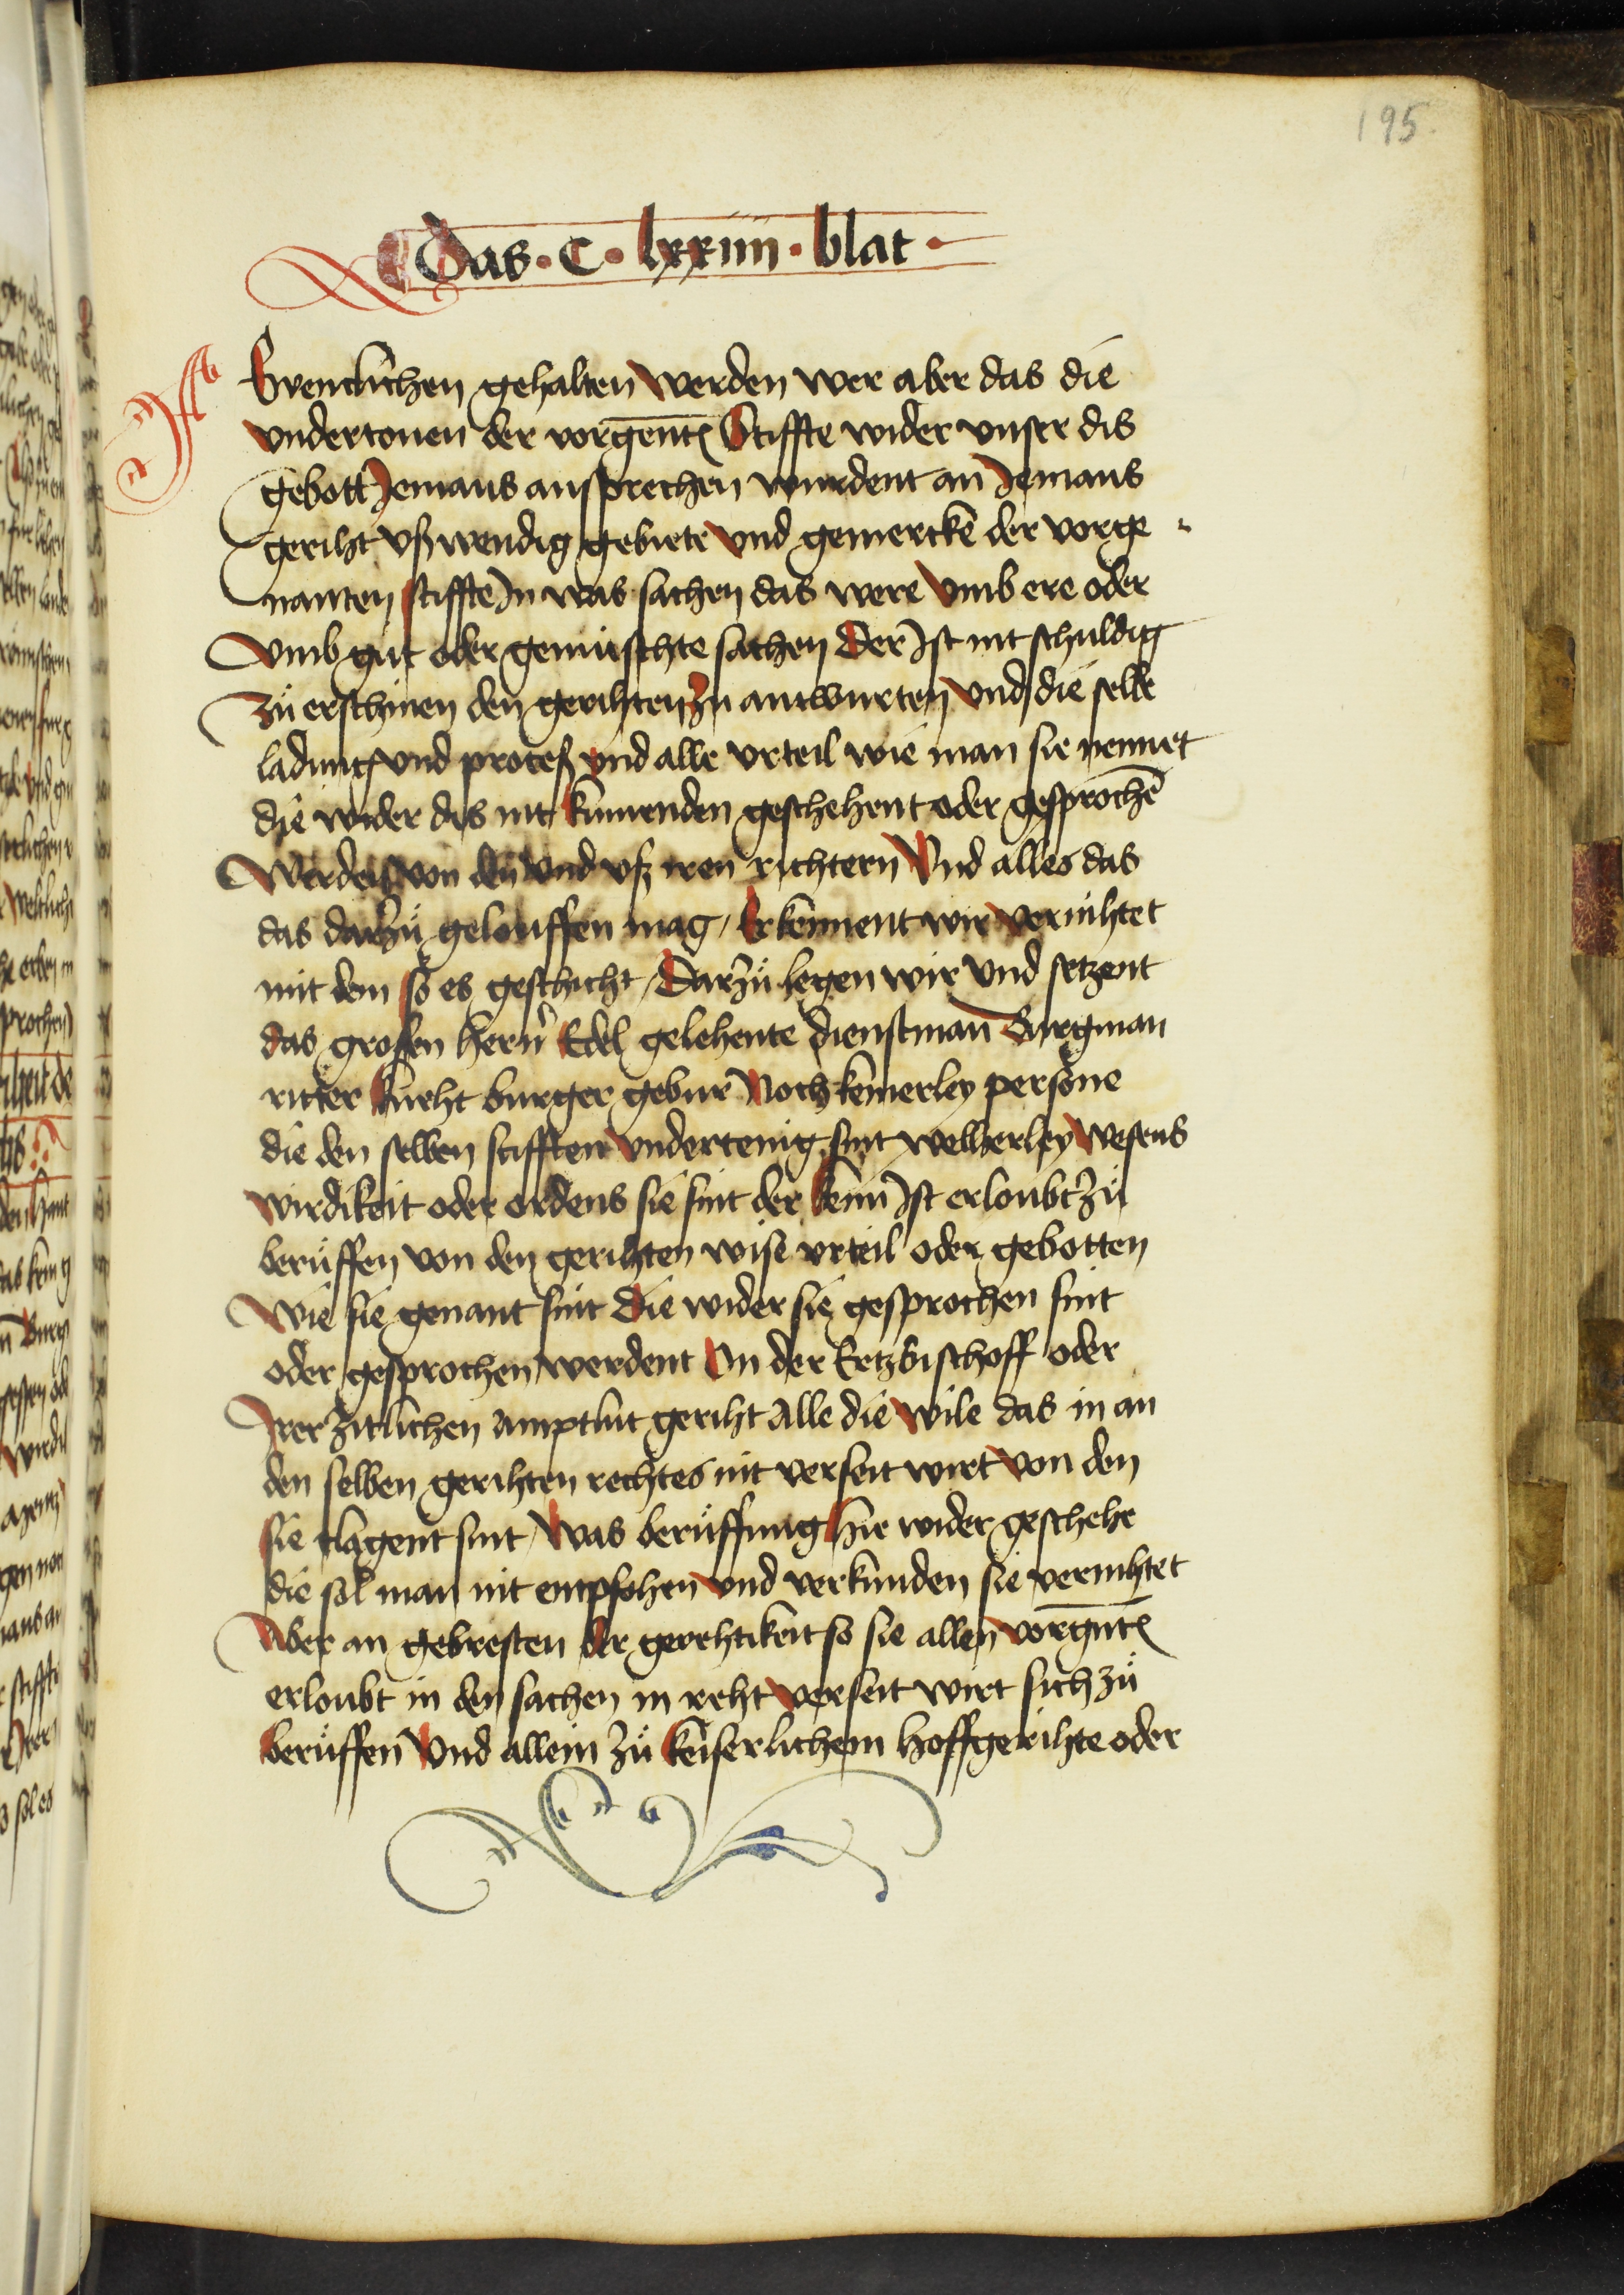 195
Das · C · lxxiiii · blat ·
Gentzlichen gehalten werden wer aber das die
vndertonen der vorgen̄t Stiffte wider vnser dis
gebott Jemans ansprechen wurdent an Jemans
geriht vßwendig gebiete vnd gemercke der vorge
nanten stiffte Jn was sachen das were vmb ere oder
vmb gůt oder gemůschte sachen Der Jst nit schuldig
zů erschinen den gerihten zu antwurten vnd die selbe
ladung vnd proceß vnd alle vrteil wie man sie nennet
die wider dis nit kumenden geschehent oder gesprochē
Werdent von den vnd vß iren richtern Vnd alles das
das darzů gelouffen mag / Erkennent wir vernihtet
mit dem so es geschicht / Darzů legen wir vnd setzent
das grofen hern Edel gelehente dienstman Burgman
ritter kneht burger gebur Noch keinerley persone
die den selben stifften vndertenig sint welherley wesens
wirdikeit oder ordens sie sint der kein Jst erloubt zů
berůffen von den gerihten wise vrteil oder gebotten
Wie sie genant sint Die wider sie gesprochen sint
oder gesprochen werdent Jn der Ertzbischoff oder
Jrer zitlichen amptlut geriht Alle die wile das in an
den selben gerihten rechtes nit verseit wirt von den
sie clagent sint / Was berůffung hie wider geschehe
die sol man nit empfohen vnd verkunden sie vernihtet
Aber an gebresten der gerehtikeit so sie allen vorgn̄t
erloubt in den sachen in reht verseit wirt sich zů
berůffen Vnd allein zů keiserlichem hoffgerihte oder